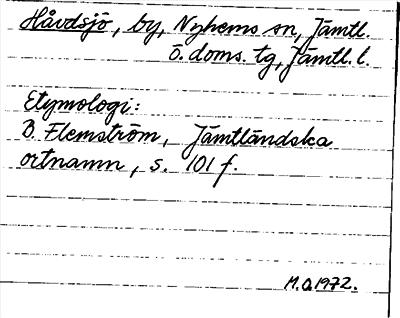 Håvdsjö, by, Nyhems sn, Jämtl.
ö. doms. tg, Jämtl. l.
Etymologi:
B. Flemström, Jämtländska
ortnamn, s. 101 f.
M.O. 1972.